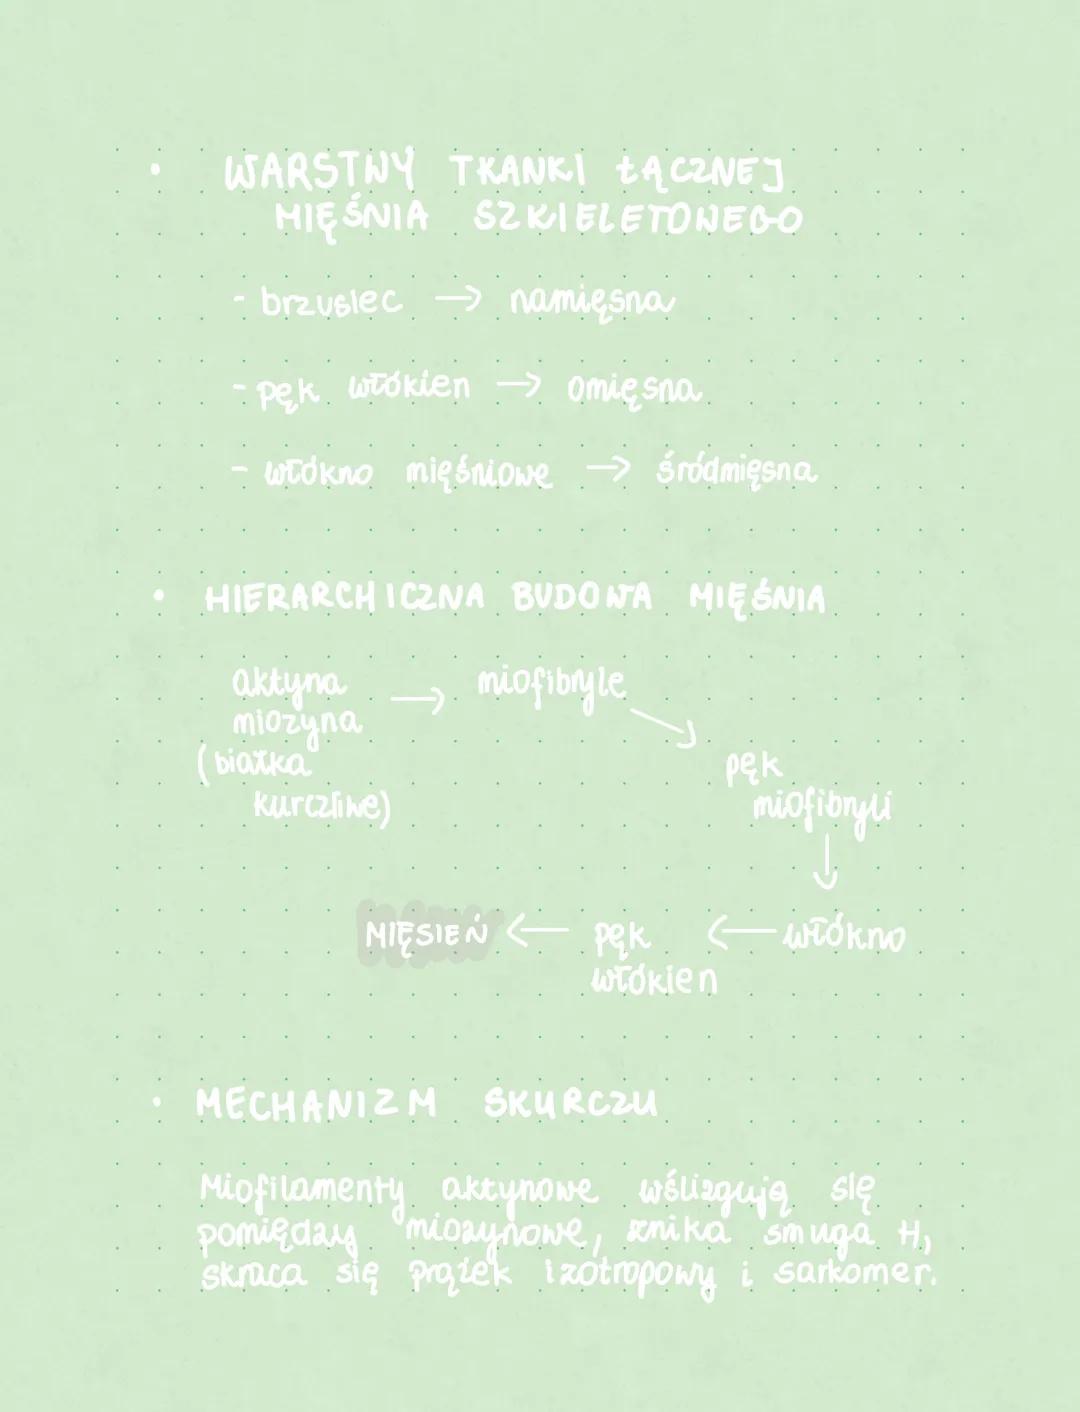 • WARSTWY TKANKI ŁĄCZNEJ
MIĘŚNIA SZKIELETOWEGO
- brzusiec → namięsna
- pęk włókien → omięsna
- włókno mięśniowe → śródmięsna
• HIERARCHICZNA BUDOWA MIĘŚNIA
aktyna → miofibryle
miozyna
(białka
kurczliwe)
pęk
miofibryli
↓
MIĘSIEŃ ← pęk ← włókno
włókien
• MECHANIZM SKURCZU
Miofilamenty aktynowe wślizgują się
pomiędzy miozynowe, znika smuga H,
skraca się prążek izotropowy i sarkomer.